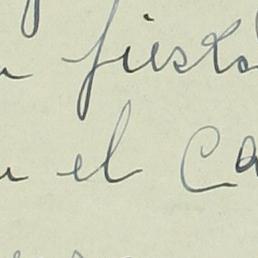 fiesta
el Ca